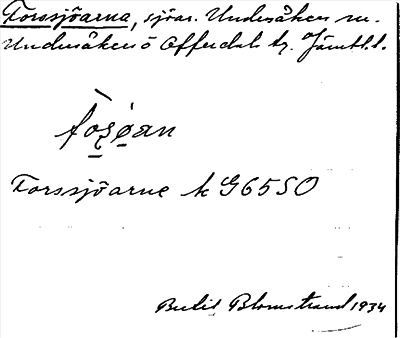 Forssjöarna, sjöar. Undersåker sn.
Undersåkers o Offerdal tg. Jämtl.l.
fo̠ʂø̠an
Forssjöarne k G65SO
Bertil Blomstrand 1934